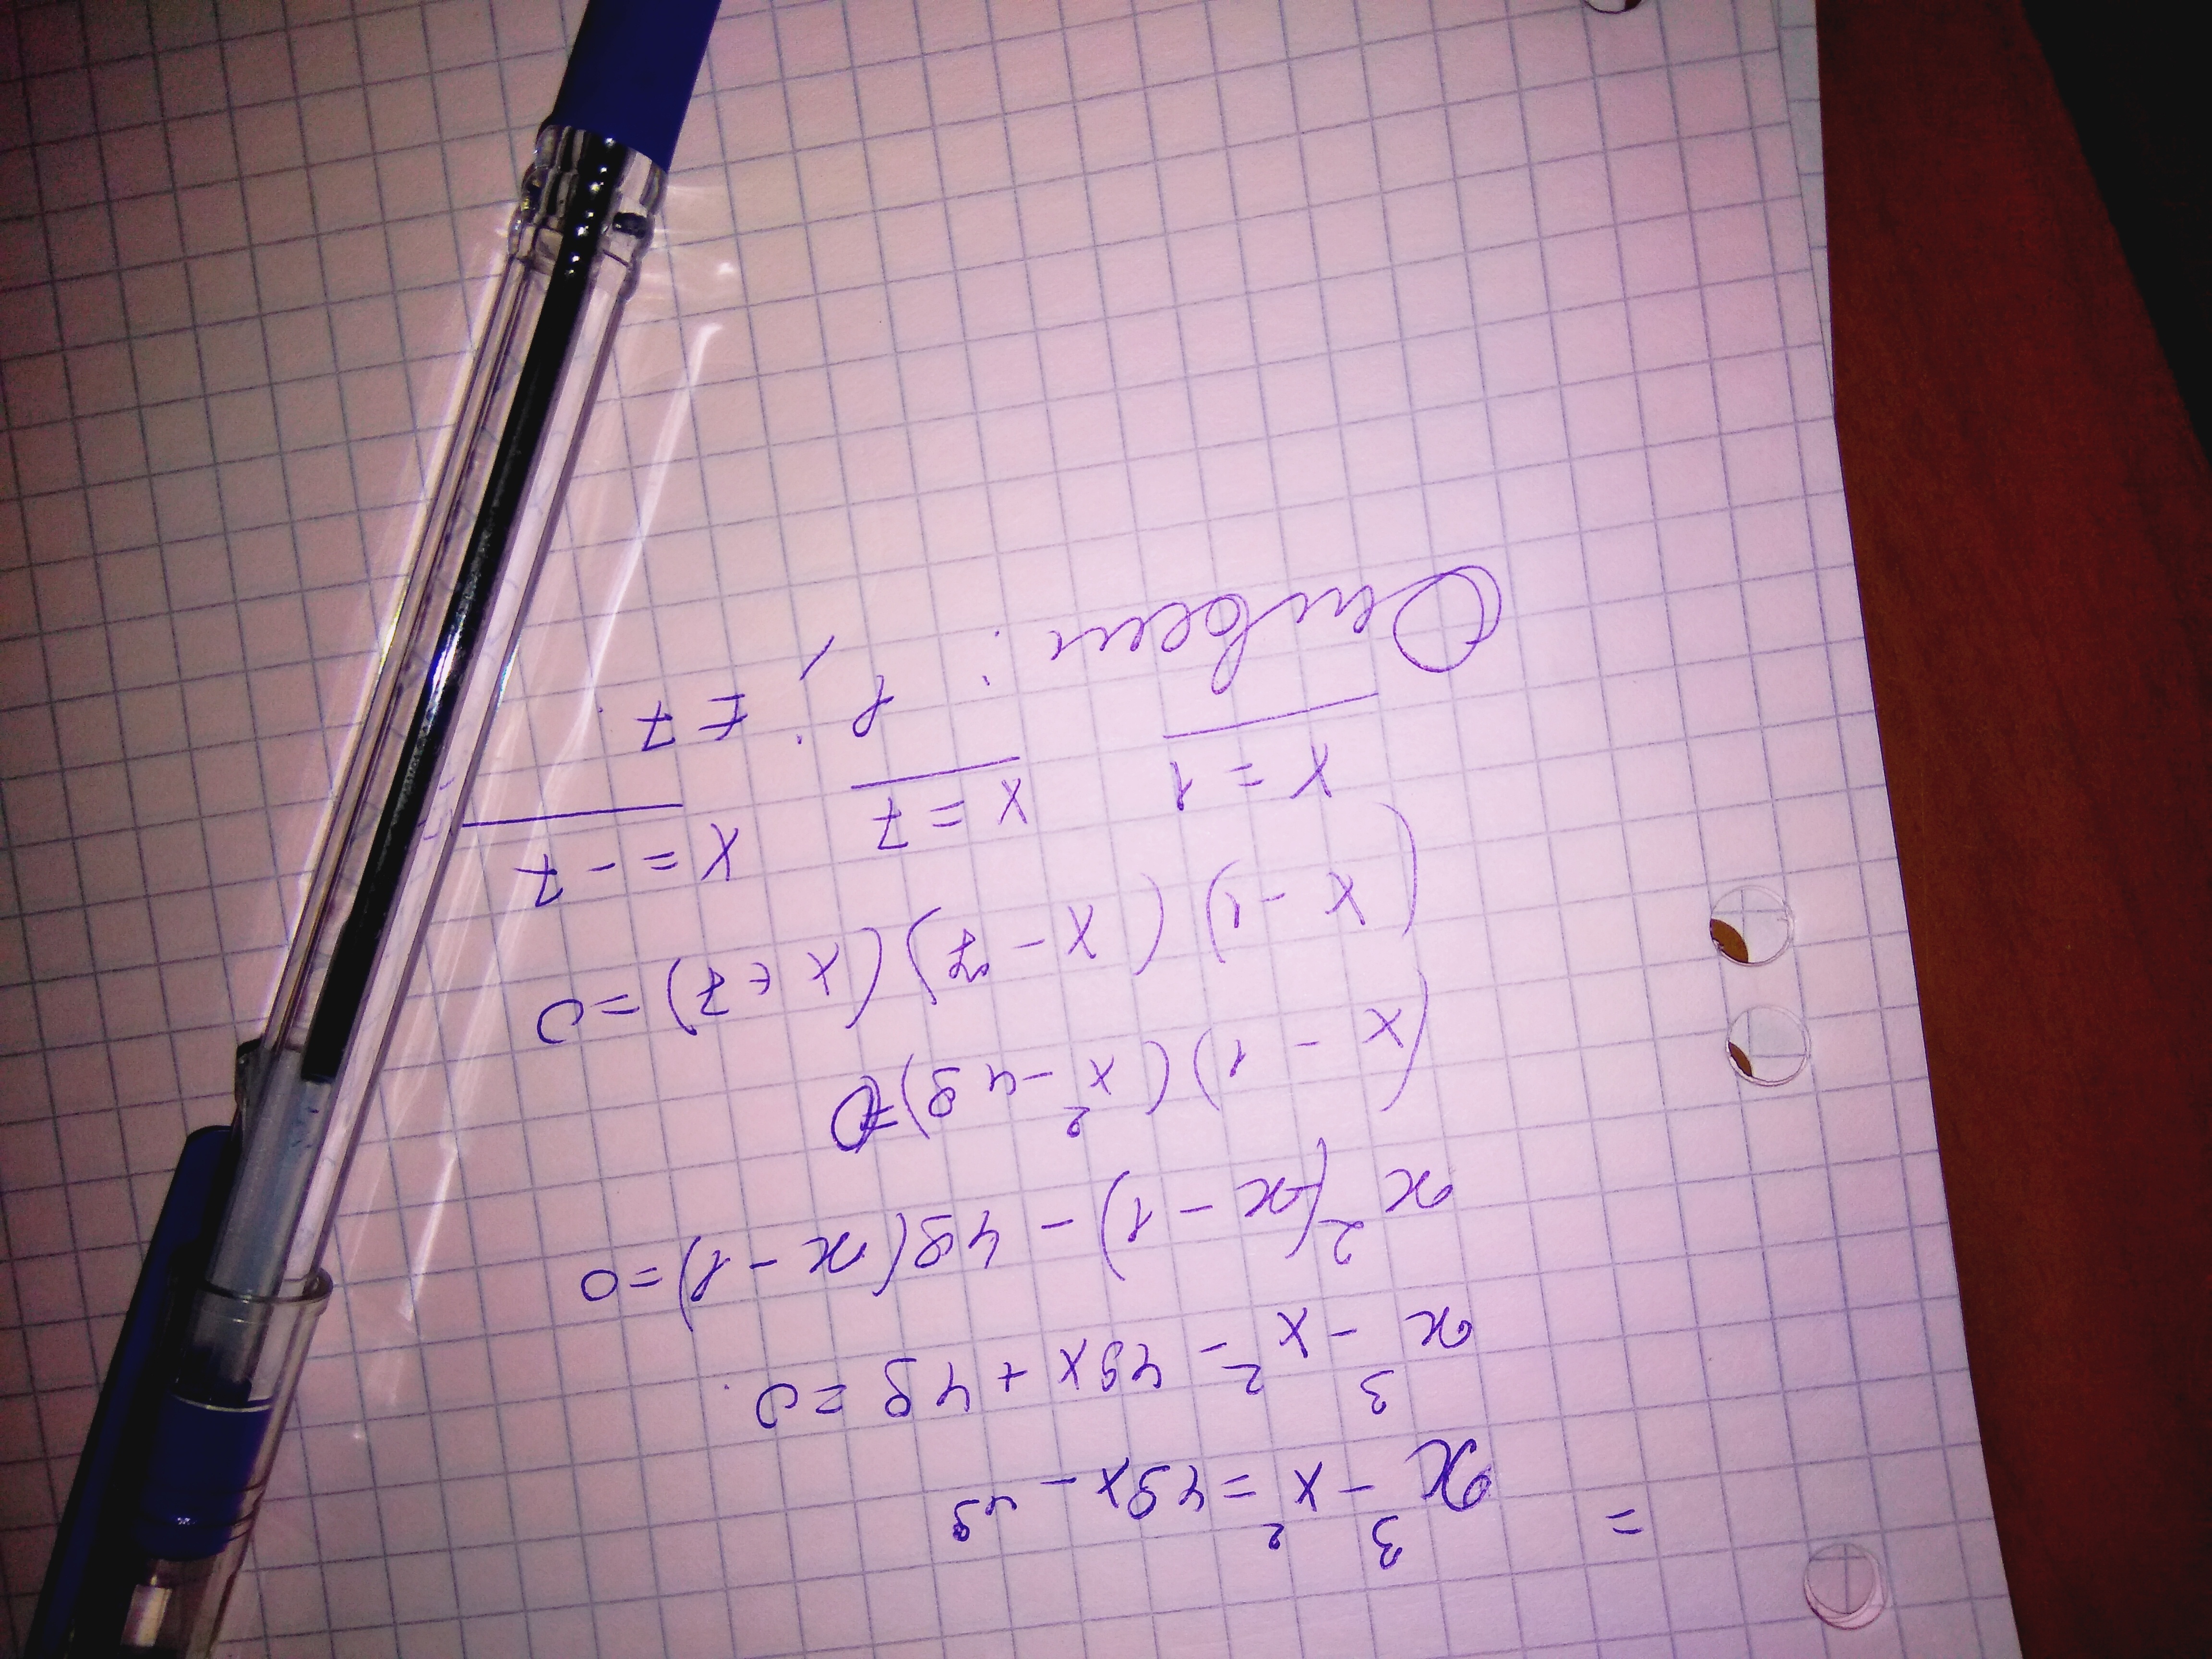 =
x³ - x² = 49x - 49
x³ - x² - 49x + 49 = 0
x²(x - 1) - 49(x - 1) = 0
(x - 1)(x² - 49) = 0
(x - 1)(x - 7)(x + 7) = 0
x = 1 x = 7 x = -7
Ответ: 1; ±7.